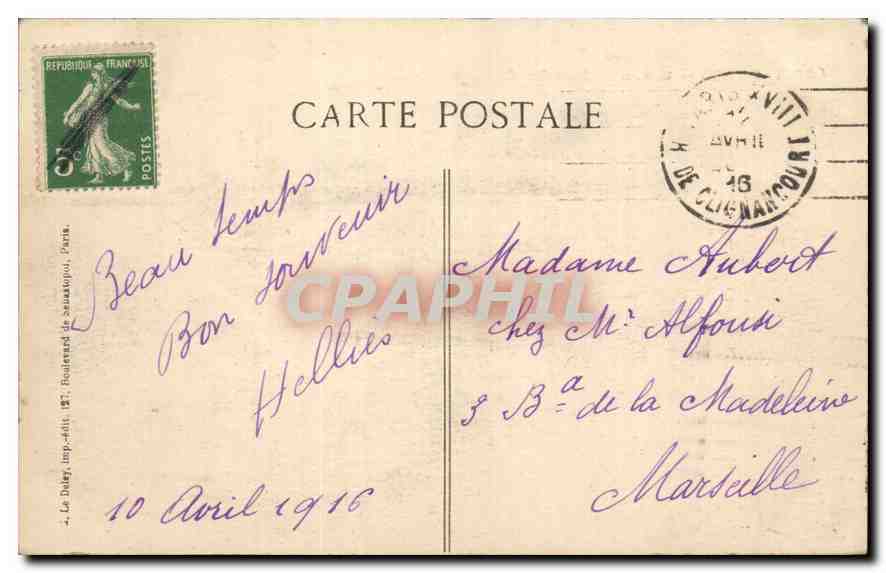 REPUBLIQUE FRANÇAISE
5c
POSTES
CARTE POSTALE
PARIS XVIII
AVRIL
16
R. DE CLIGNANCOURT
Beau temps
Bon souvenir
Helliès
10 Avril 1916
Madame Aubert
chez Mr Alfonsi
3 Bd de la Madeleine
Marseille
Le Deley, imp.-édit. 127, Boulevard de Sébastopol, Paris.
CPAPHIL